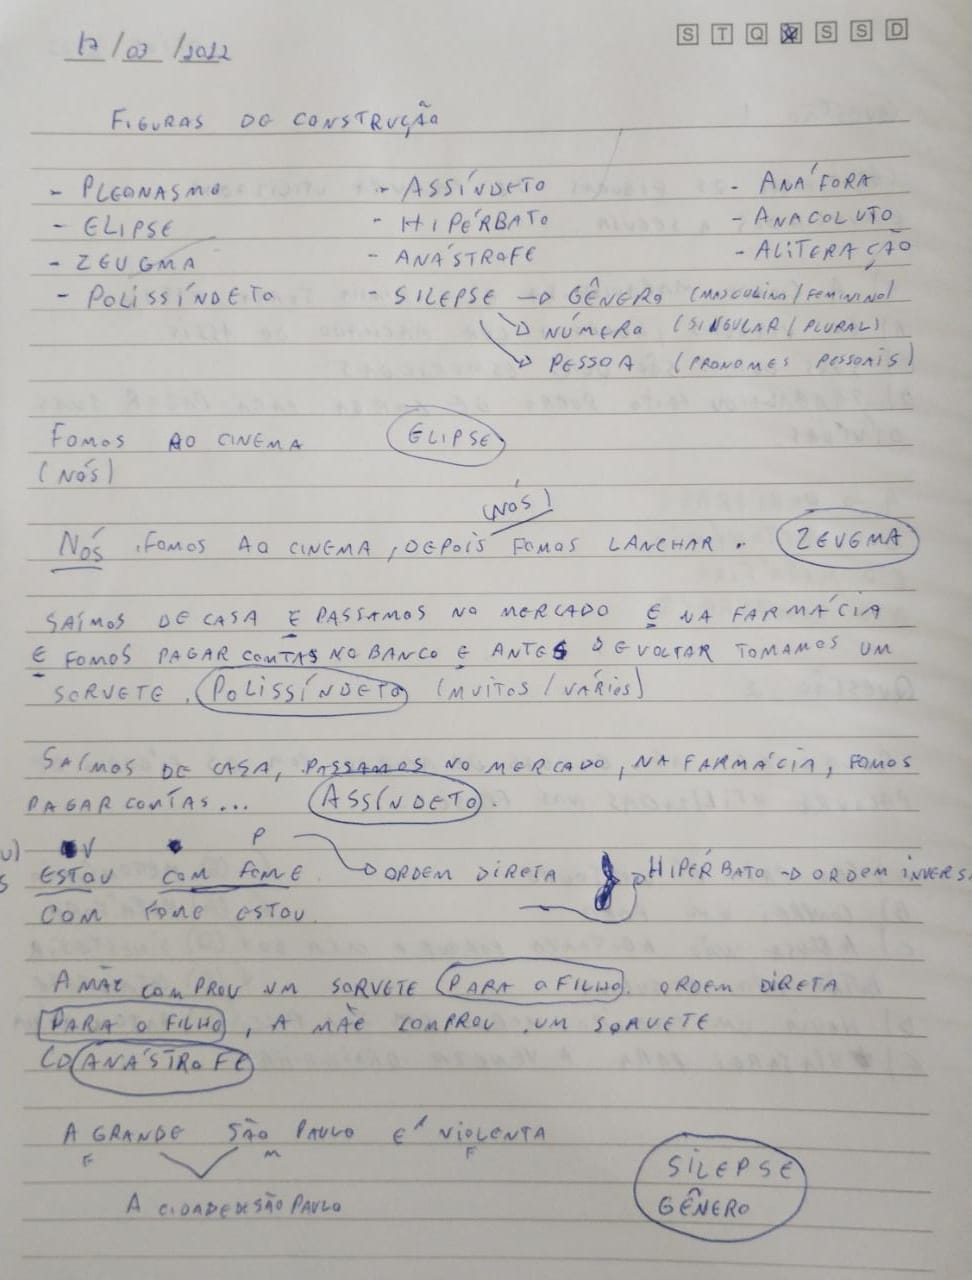 17/03/2022 S T Q S S D
FIGURAS DE CONSTRUÇÃO
- PLEONASMO - ASSÍNDETO - ANÁFORA
- ELIPSE - HIPÉRBATO - ANACOLUTO
- ZEUGMA - ANÁSTROFE - ALITERAÇÃO
- POLISSÍNDETO - SILEPSE → GÊNERO (MASCULINO/FEMININO)
→ NÚMERO (SINGULAR/PLURAL)
→ PESSOA (PRONOMES PESSOAIS)
FOMOS AO CINEMA ELIPSE
(NÓS)
(NÓS)
NÓS FOMOS AO CINEMA, DEPOIS FOMOS LANCHAR. ZEUGMA
SAÍMOS DE CASA E PASSAMOS NO MERCADO E NA FARMÁCIA
E FOMOS PAGAR CONTAS NO BANCO E ANTES DE VOLTAR TOMAMOS UM
SORVETE. POLISSÍNDETO (MUITOS/VÁRIOS)
SAÍMOS DE CASA, PASSAMOS NO MERCADO, NA FARMÁCIA, FOMOS
PAGAR CONTAS... ASSÍNDETO.
V P
ESTOU COM FOME. → ORDEM DIRETA } HIPÉRBATO → ORDEM INVERS
COM FOME ESTOU.
A MÃE COMPROU UM SORVETE PARA O FILHO. ORDEM DIRETA
PARA O FILHO, A MÃE COMPROU UM SORVETE
ANÁSTROFE
A GRANDE SÃO PAULO É VIOLENTA
F M F
SILEPSE
A CIDADE DE SÃO PAULO GÊNERO